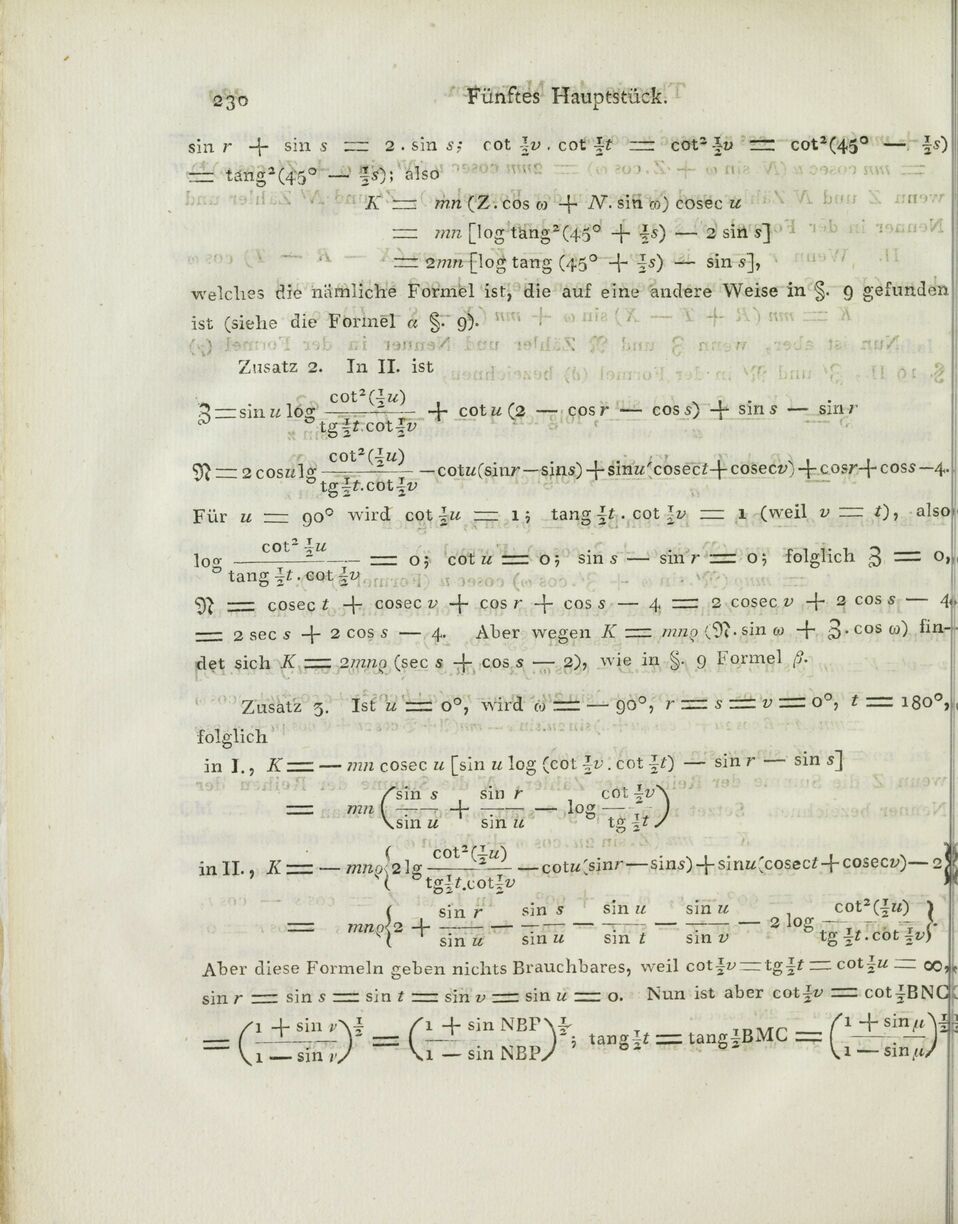 230 Fünftes Hauptstück.
sin r + sin s = 2 . sin s; cot ½v . cot ½t = cot² ½v = cot²(45° — ½s)
= tang²(45° — ½s); also
K = mn (Z. cos ω + N. sin ω) cosec u
= mn [log tang²(45° + ½s) — 2 sin s]
= 2mn [log tang (45° + ½s) — sin s],
welches die nämliche Formel ist, die auf eine andere Weise in §. 9 gefunden
ist (siehe die Formel α §. 9).
Zusatz 2. In II. ist
ℨ = sin u log cot²(½u) / tg ½t. cot ½v + cot u (2 — cos r — cos s) + sin s — sin r
𝔑 = 2 cos u lg cot²(½u) / tg ½t. cot ½v — cot u (sin r — sin s) + sin u (cosec t + cosec v) + cos r + cos s — 4.
Für u = 90° wird cot ½u = 1; tang ½t . cot ½v = 1 (weil v = t), also
log cot² ½u / tang ½t. cot ½v = 0; cot u = 0; sin s — sin r = 0; folglich ℨ = 0,
𝔑 = cosec t + cosec v + cos r + cos s — 4 = 2 cosec v + 2 cos s — 4
= 2 sec s + 2 cos s — 4. Aber wegen K = mnϱ (𝔑. sin ω + ℨ. cos ω) fin-
det sich K = 2mnϱ (sec s + cos s — 2), wie in §. 9 Formel β.
Zusatz 3. Ist u = 0°, wird ω = — 90°, r = s = v = 0°, t = 180°,
folglich
in I., K = — mn cosec u [sin u log (cot ½v . cot ½t) — sin r — sin s]
= mn (sin s / sin u + sin r / sin u — log cot ½v / tg ½t)
in II., K = — mnϱ {2 lg cot²(½u) / tg ½t. cot ½v — cot u (sin r — sin s) + sin u (cosec t + cosec v) — 2}
= mnϱ {2 + sin r / sin u — sin s / sin u — sin u / sin t — sin u / sin v — 2 log cot²(½u) / tg ½t. cot ½v}.
Aber diese Formeln geben nichts Brauchbares, weil cot ½v = tg ½t = cot ½u = ∞,
sin r = sin s = sin t = sin v = sin u = 0. Nun ist aber cot ½v = cot ½BNC
= (1 + sin ν / 1 — sin ν)½ = (1 + sin NBP / 1 — sin NBP)½; tang ½t = tang ½BMC = (1 + sin μ / 1 — sin μ)½